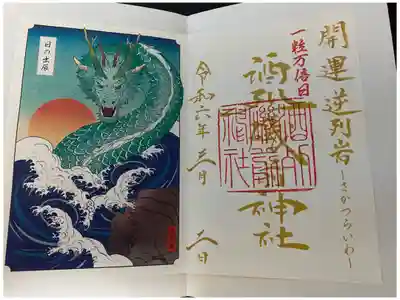 開運 逆列岩 -さかつらいわ-
一粒万倍日
酒列磯前神社
令和六年三月二日
日の出辰